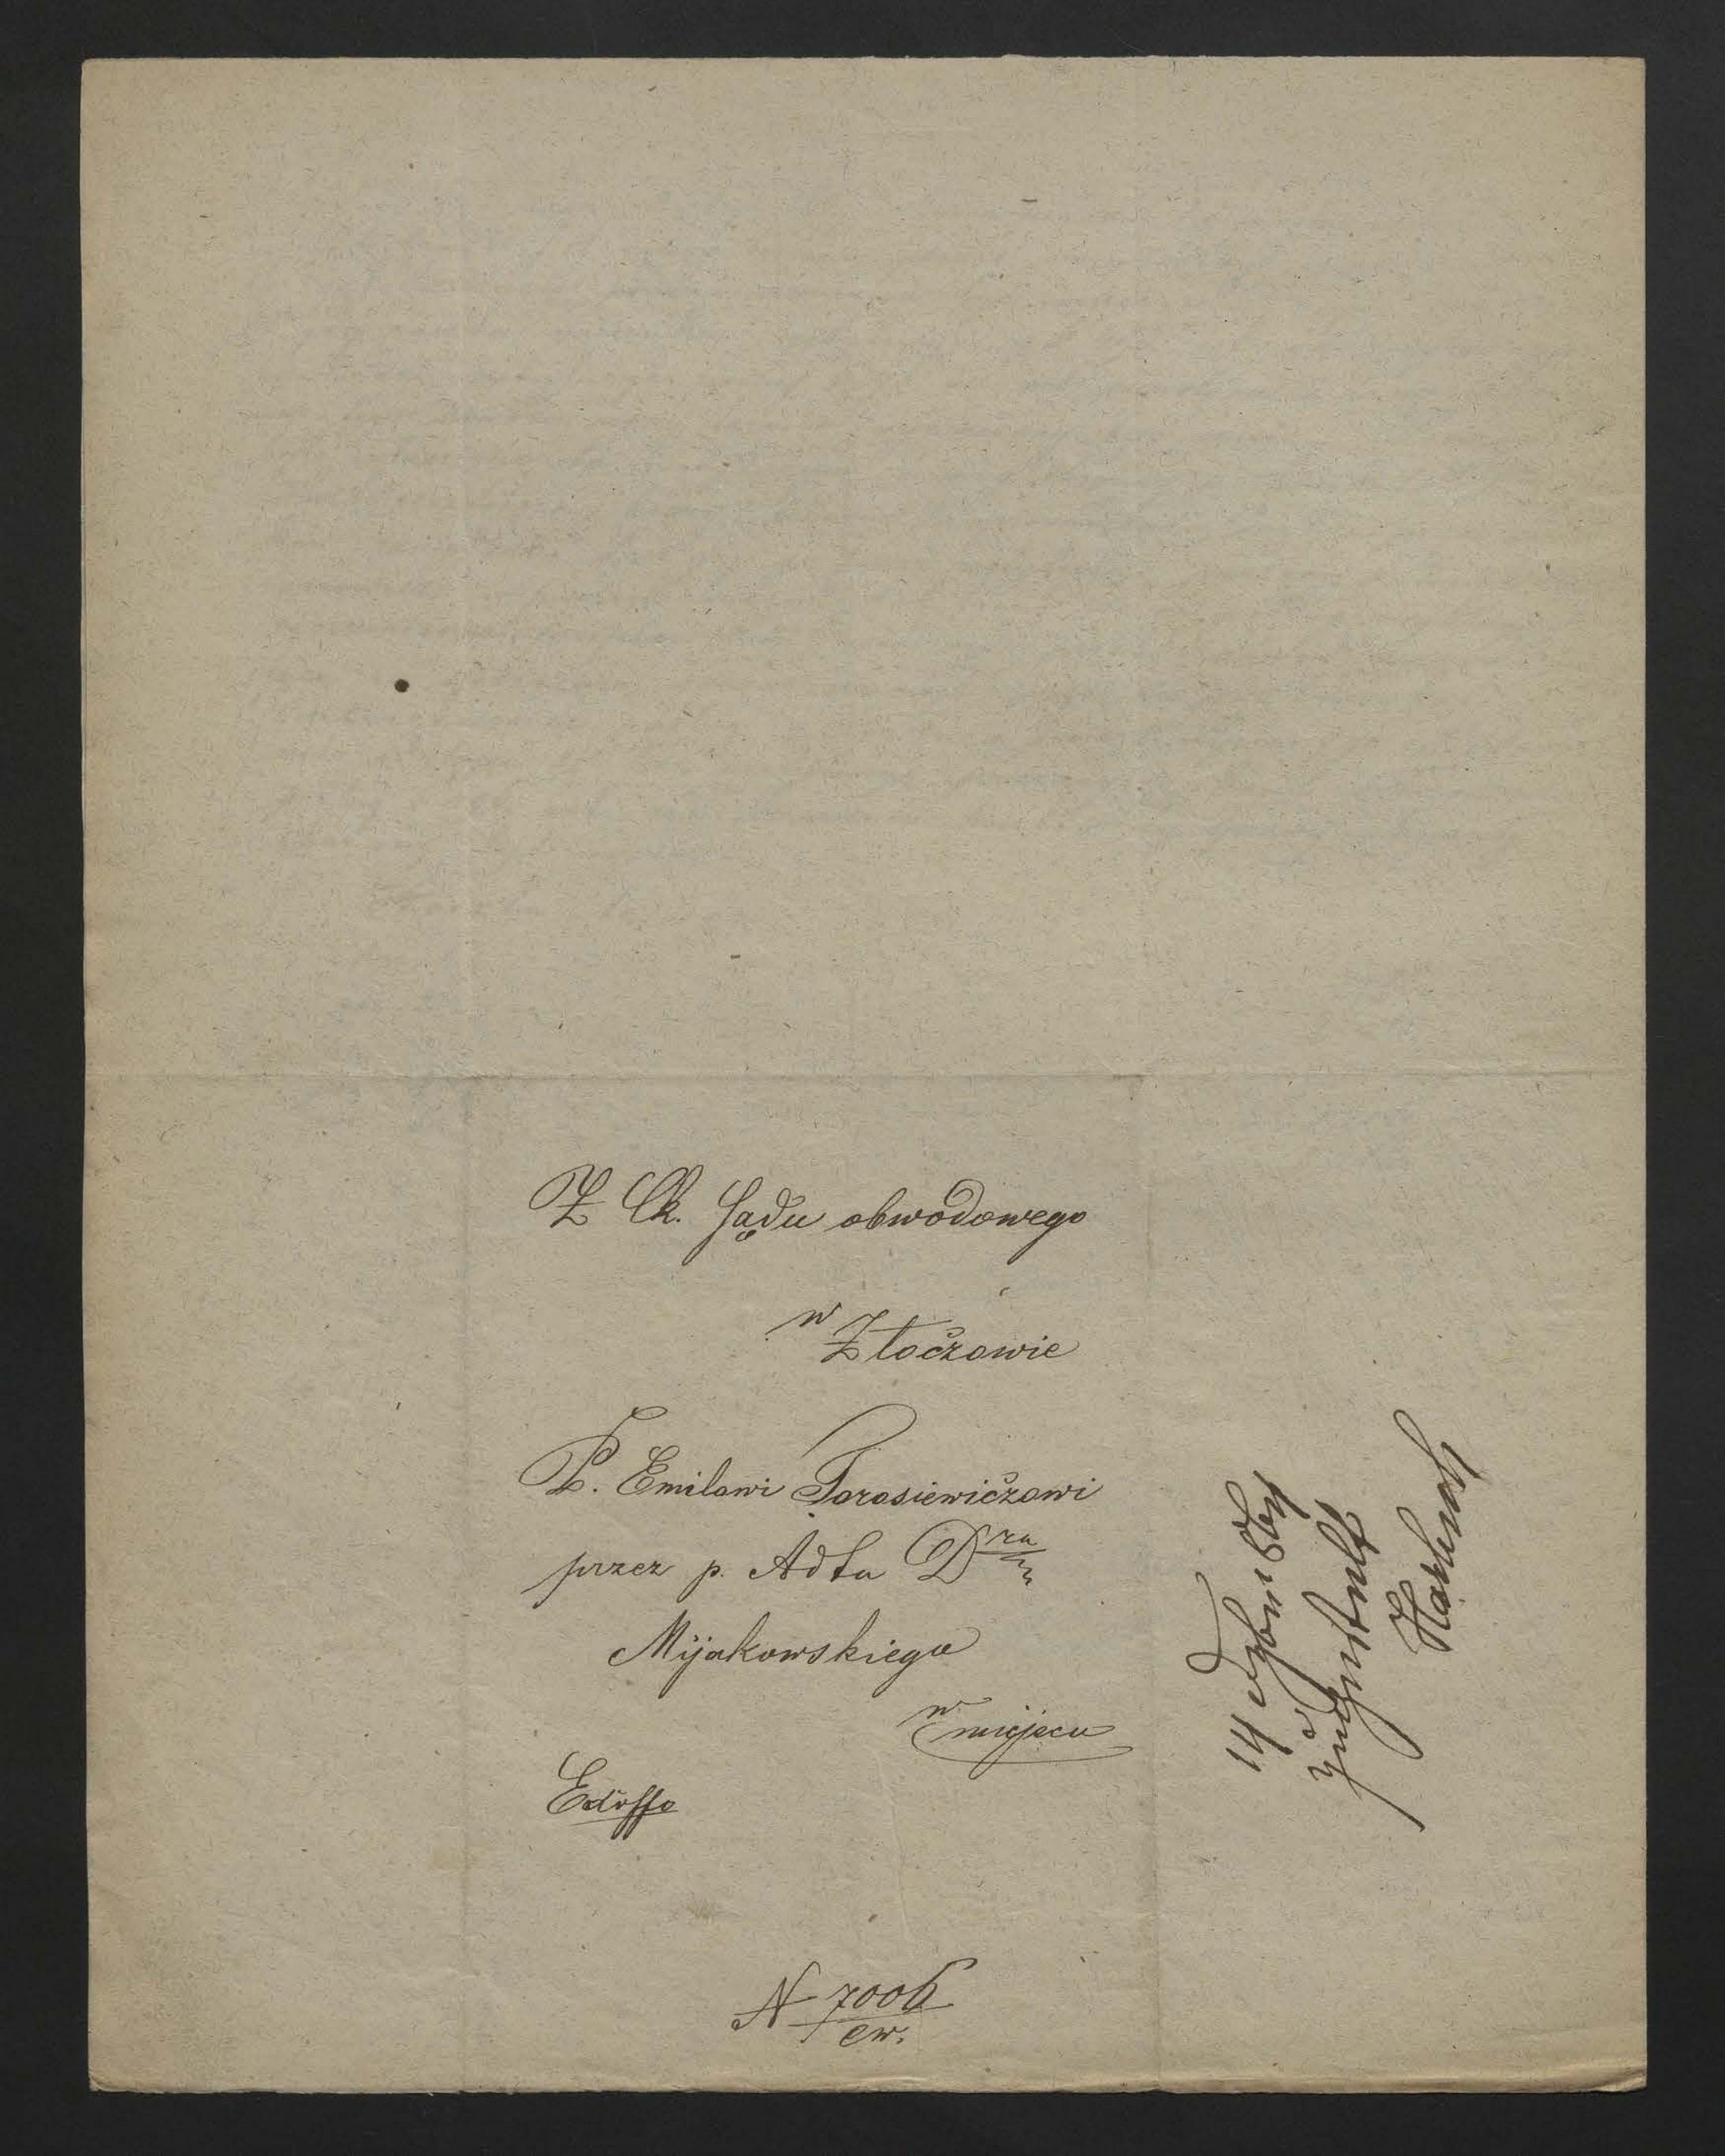 Z Ck. Sądu obwodowego
w
Złoczowie
P. Emilowi Torosiewiczowi
przez p. Adta Dra
Mijakowskiego
w miejscu
Exoffo
N 7006
cw.
14
zugestellt